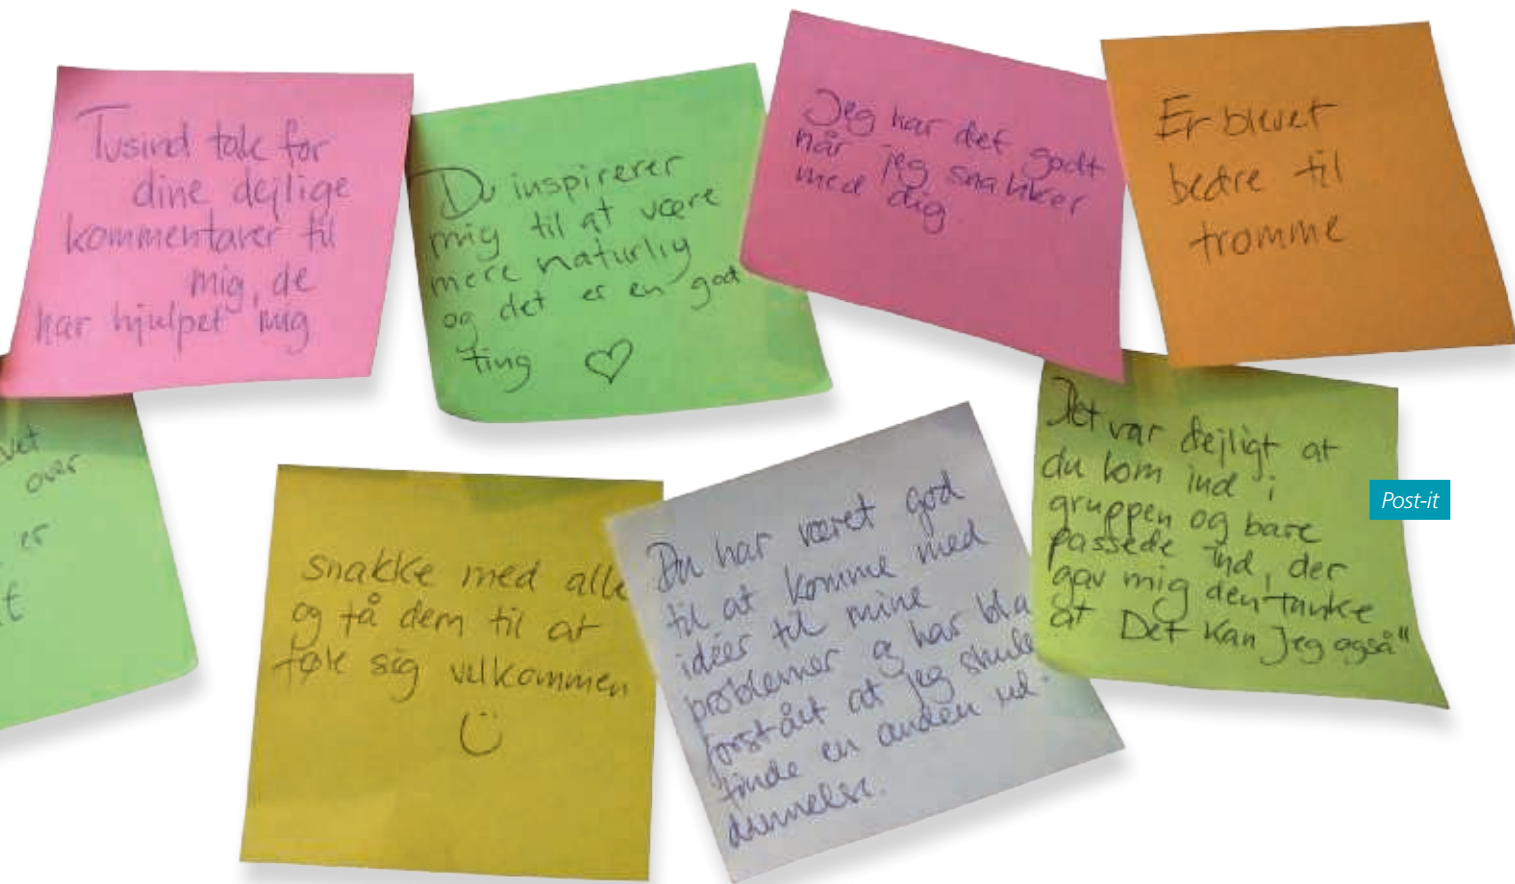 Tusind tak for
dine dejlige
kommentarer til
mig, de
har hjulpet mig
Du inspirerer
mig til at være
mere naturlig
og det er en god
ting ♡
Jeg har det godt
når jeg snakker
med dig
Er blevet
bedre til
tromme
over
er
snakke med alle
og få dem til at
føle sig velkommen
Du har været god
til at komme med
idéer til mine
problemer og har bla
forstået at jeg skulle
finde en anden ud-
dannelse.
Det var dejligt at
du kom ind i
gruppen og bare
passede ind, der
gav mig den tanke
at Det kan jeg også"
Post-it